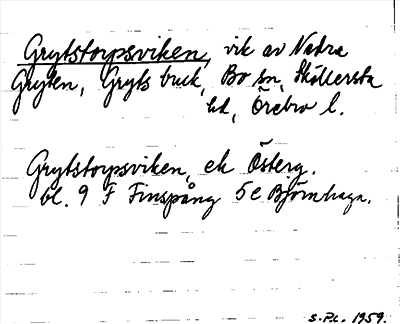 Grytstorpsviken, vik av Nedre
Gryten, Gryts bruk, Bo sn, Sköllersta
hd, Örebro l.
Grytstorpsviken, ek Österg.
bl. 9 F Finspång 5 e Björnhaga.
S.P.L. 1959.